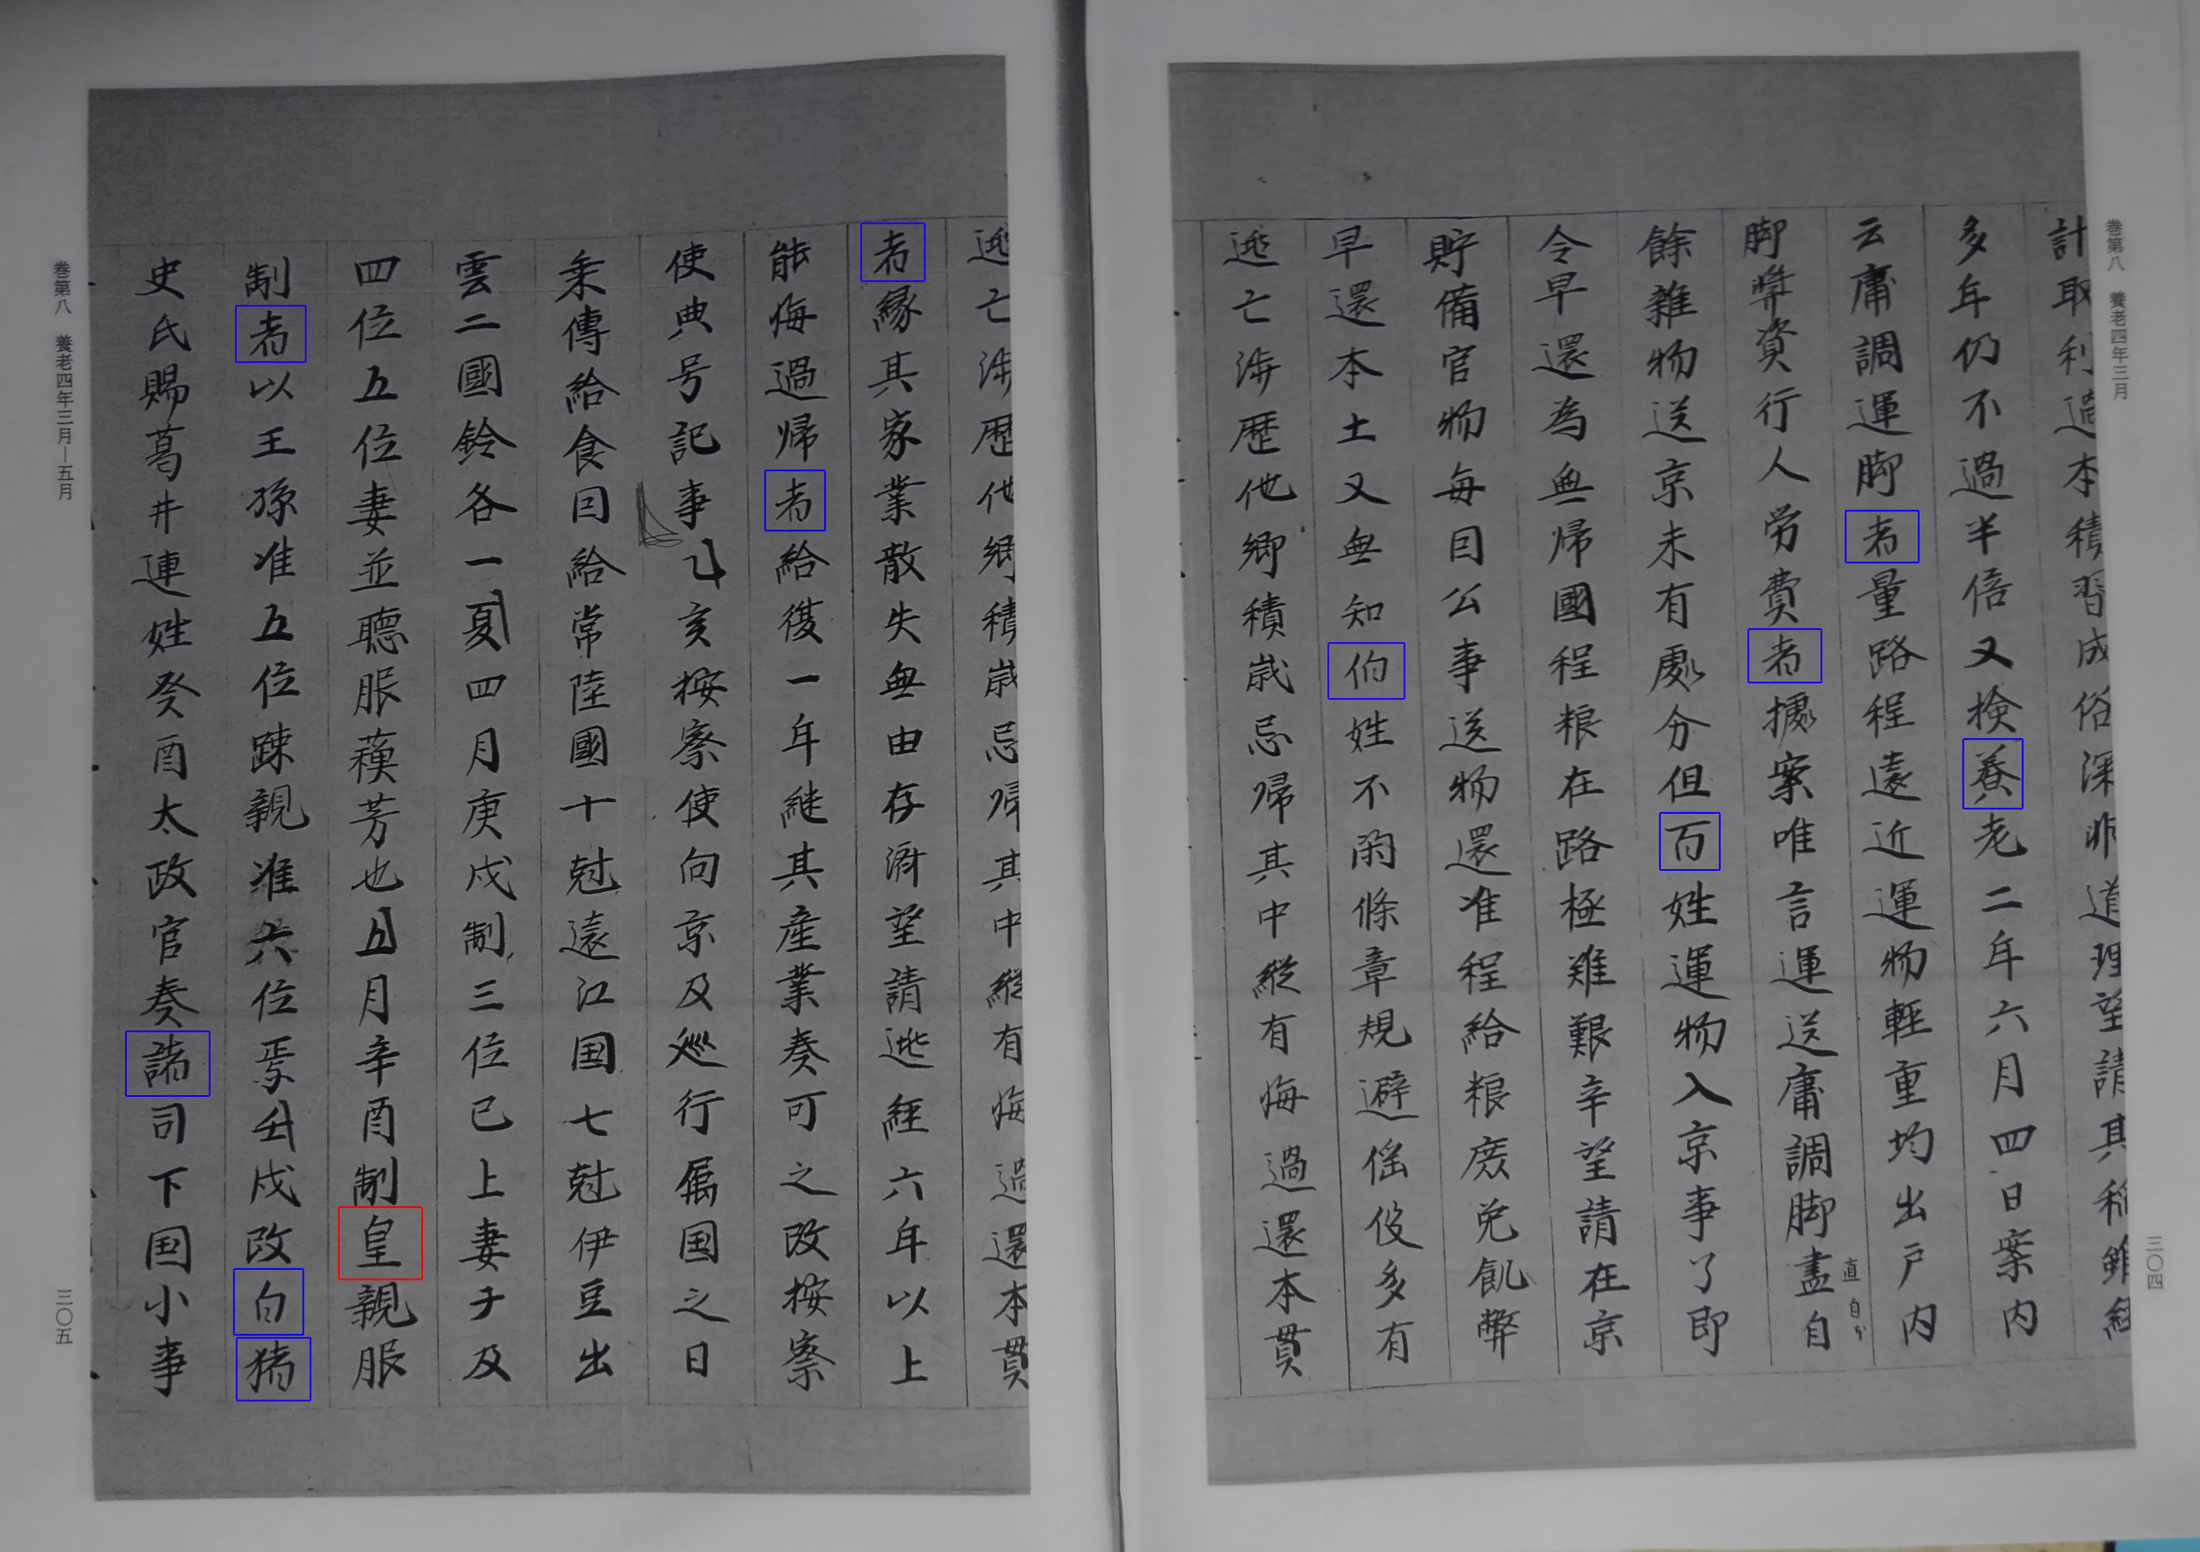 巻第八　養老四年三月
三〇四
計取利過本積習成俗深非道理望請其稲雖経
多年仍不過半倍又検養老二年六月四日案内
云庸調運脚者量路程遠近運物軽重均出戸内
脚弊資行人労費者據案唯言運送庸調脚盡自
直自か
餘雜物送京未有處分但百姓運物入京事了即
令早還為無帰國程粮在路極難艱辛望請在京
貯備官物毎因公事送物還准程給粮庶免飢弊
早還本土又無知伯姓不閑條章規避徭役多有
逃亡渉歴他郷積歳忌帰其中縦有悔過還本貫
逃亡渉歴他郷積歳忌帰其中縦有悔過還本貫
者縁其家業散失無由存済望請逃経六年以上
能悔過帰者給復一年継其産業奏可之改按察
使典号記事乙亥按察使向京及巡行属国之日
乗傳給食因給常陸國十尅遠江国七尅伊豆出
雲二國鈴各一夏四月庚戌制三位已上妻子及
四位五位妻並聴服蘓芳也五月辛酉制皇親服
制者以王孫准五位踈親准六位焉壬戌改白猪
史氏賜葛井連姓癸酉太政官奏諸司下国小事
巻第八　養老四年三月―五月
三〇五